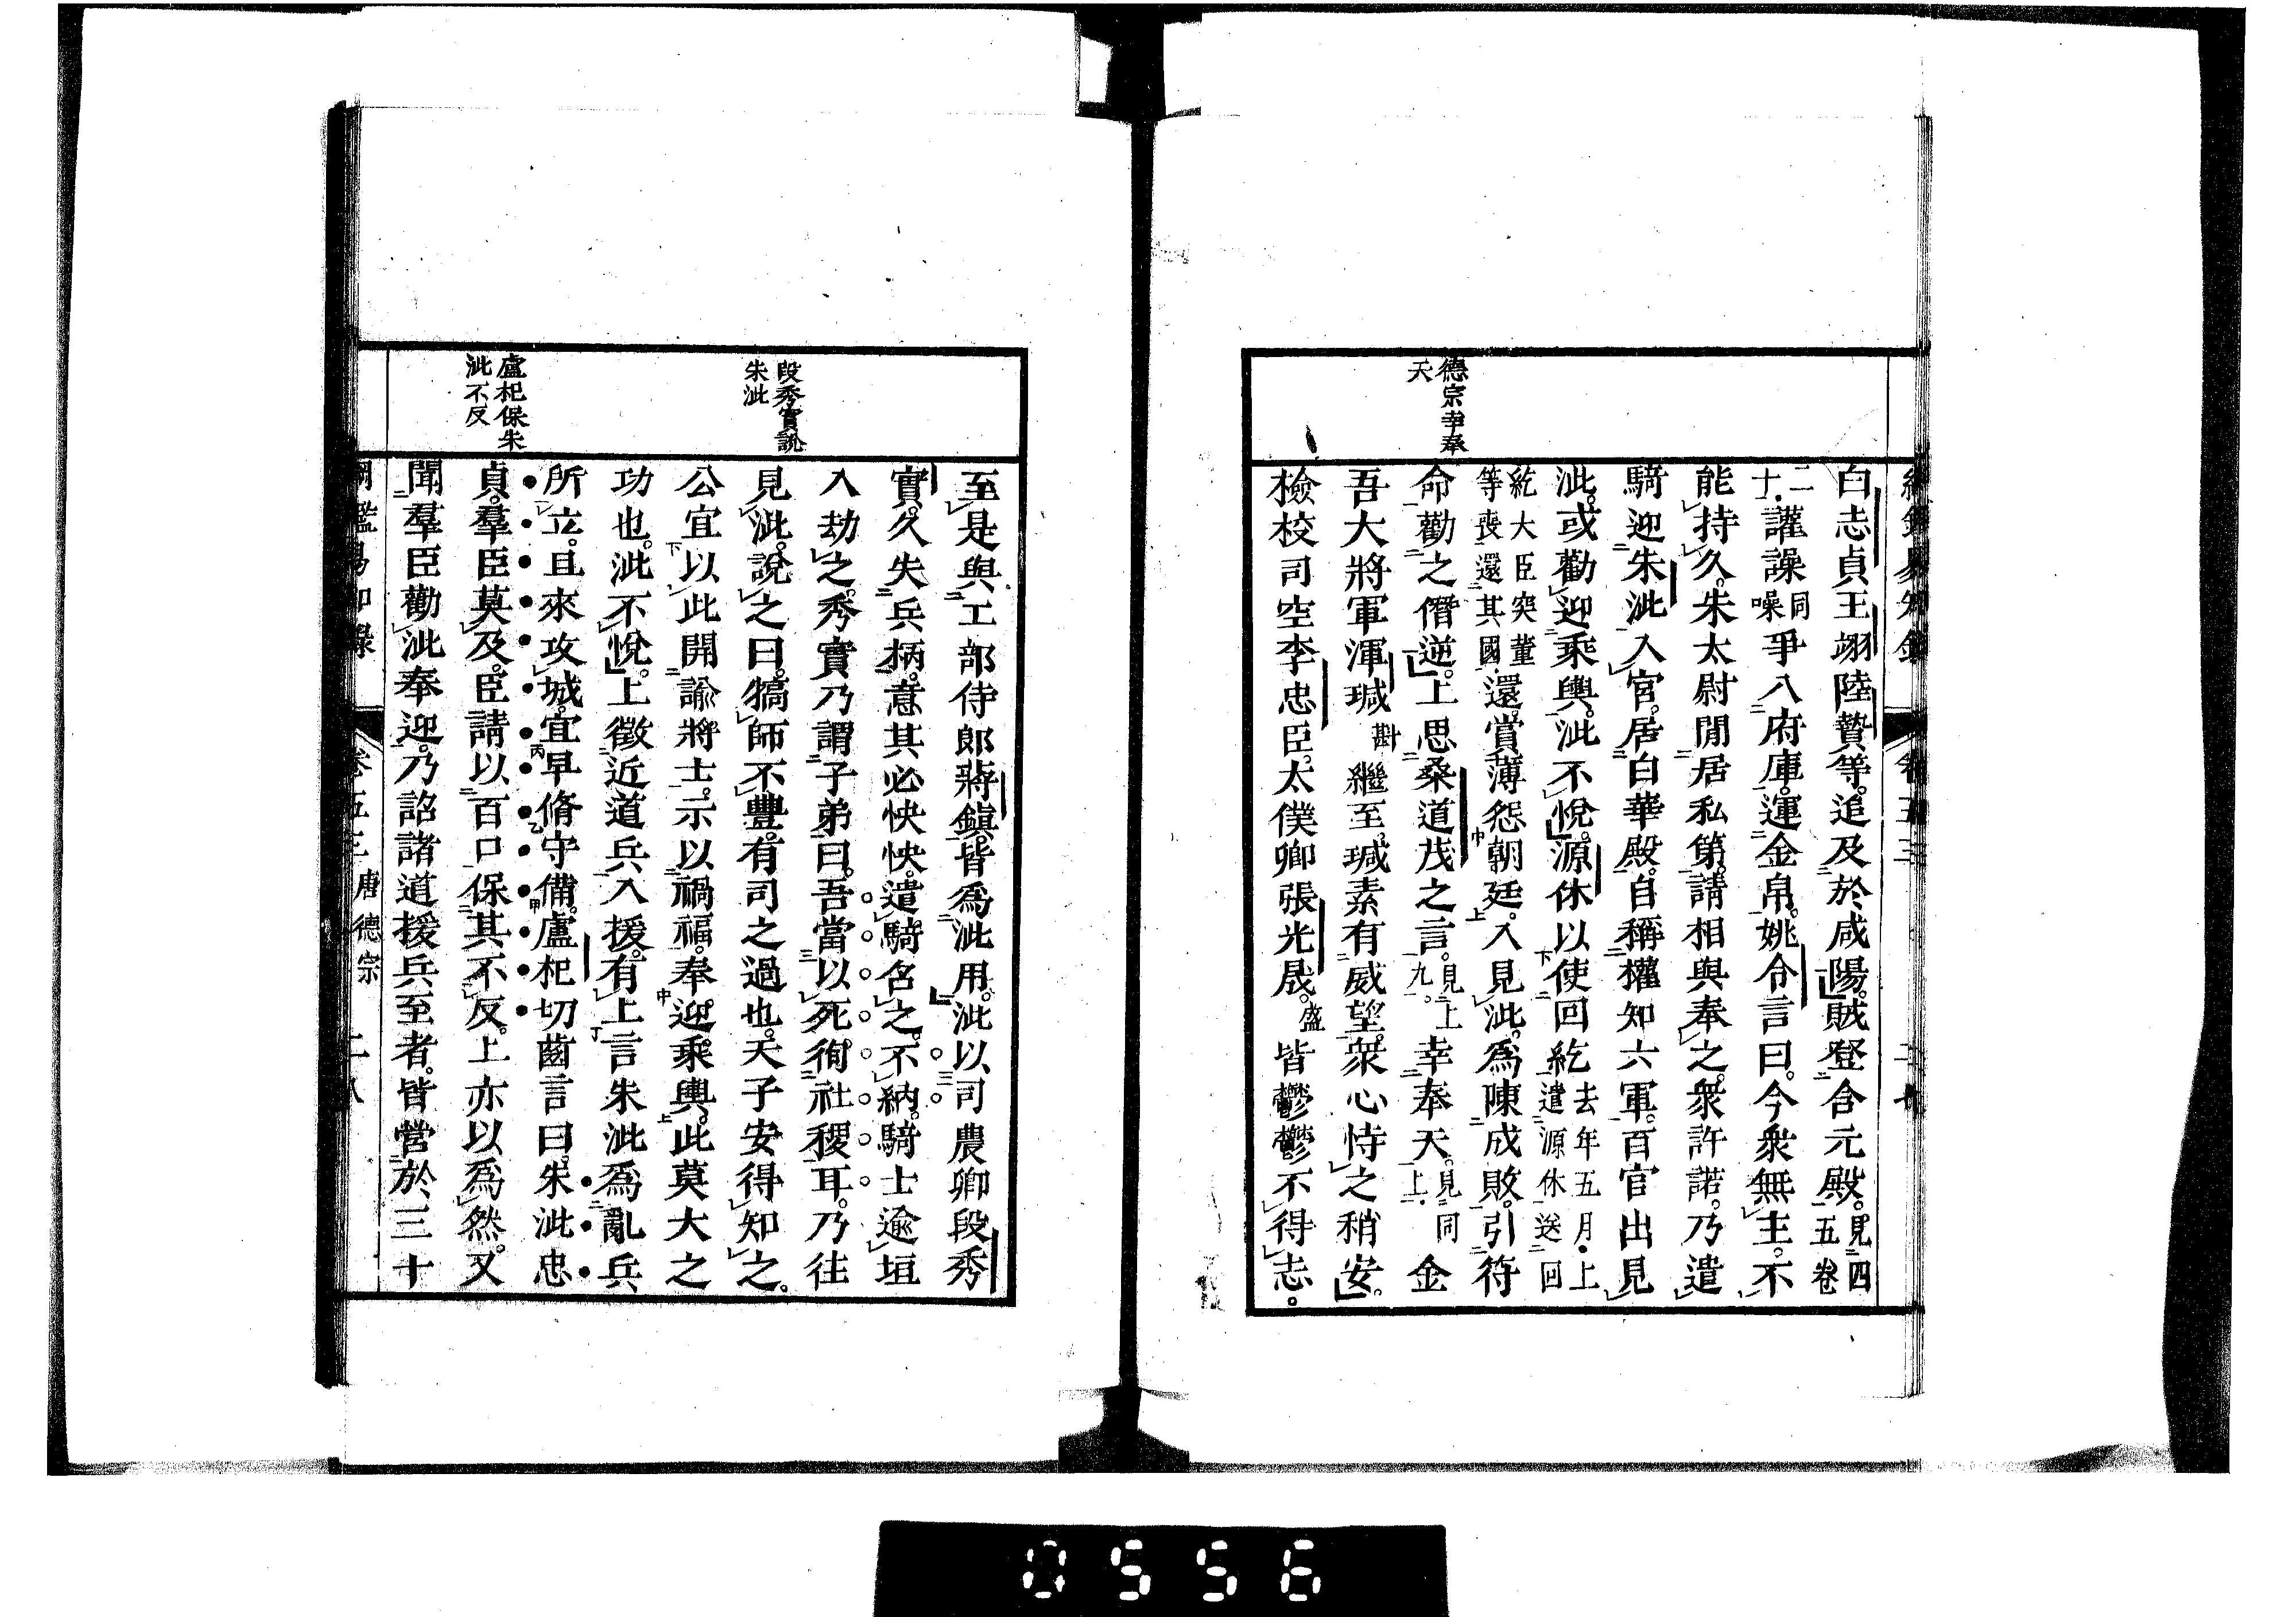 白志貞王翃陸贄等。追及於咸陽。賊登含元殿。見四五卷
二十。讙譟同噪爭入府庫。運金帛。姚令言曰。今衆無主。不
能持久。朱太尉閒居私第。請相與奉之。衆許諾。乃遣
騎迎朱泚入宮。居白華殿。自稱權知六軍。百官出見
泚。或勸迎乘輿。泚不悅。源休以使回紇去年五月。上遣源休送回
紇大臣突董等喪還其國還。賞薄怨朝廷。入見泚。爲陳成敗。引符
命勸之僭逆。上思桑道茂之言。見上九。幸奉天。見同上。金
吾大將軍渾瑊斟繼至。瑊素有威望。衆心恃之稍安。
檢校司空李忠臣。太僕卿張光晟。盛皆鬱鬱不得志。
德宗幸奉
天
至是與工部侍郎蔣鎭。皆爲泚用。泚以司農卿段秀
實。久失兵柄。意其必怏怏。遣騎召之。不納。騎士逾垣
入劫之。秀實乃謂子弟曰。吾當以死徇社稷耳。乃往
見泚。說之曰。犒師不豐。有司之過也。天子安得知之。
公宜以此開諭將士。示以禍福。奉迎乘輿。此莫大之
功也。泚不悅。上徵近道兵入援。有上言朱泚爲亂兵
所立。且來攻城。宜早脩守備。盧杞切齒言曰。朱泚忠
貞。羣臣莫及。臣請以百口保其不反。上亦以爲然。又
聞羣臣勸泚奉迎。乃詔諸道援兵至者。皆營於三十
段秀實說
朱泚
盧杞保朱
泚不反
卷五三 唐德宗 二八
0556